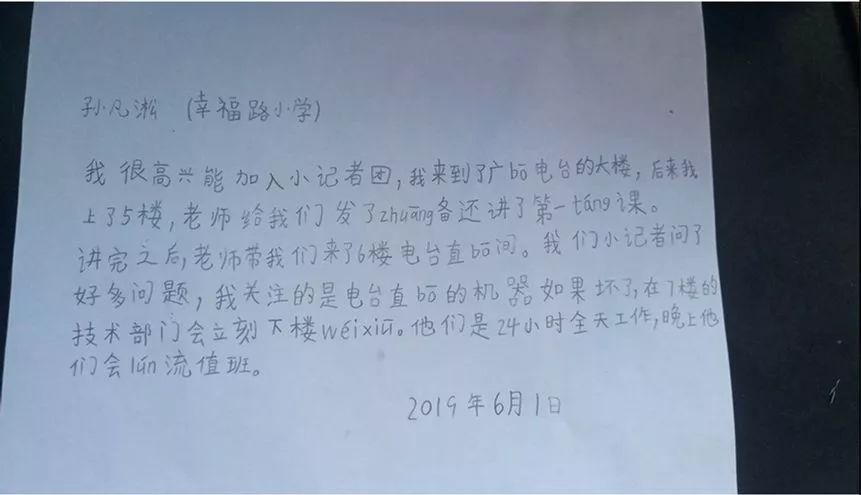 孙凡淞 (幸福路小学)
我很高兴能加入小记者团,我来到了广bō电台的大楼,后来我
上了5楼,老师给我们发了zhuāng备还讲了第一táng课。
讲完之后,老师带我们来了6楼电台直bō间。我们小记者问了
好多问题,我关注的是电台直bō的机器如果坏了,在7楼的
技术部门会立刻下楼wéixiū。他们是24小时全天工作,晚上他
们会lún流值班。
2019年6月1日